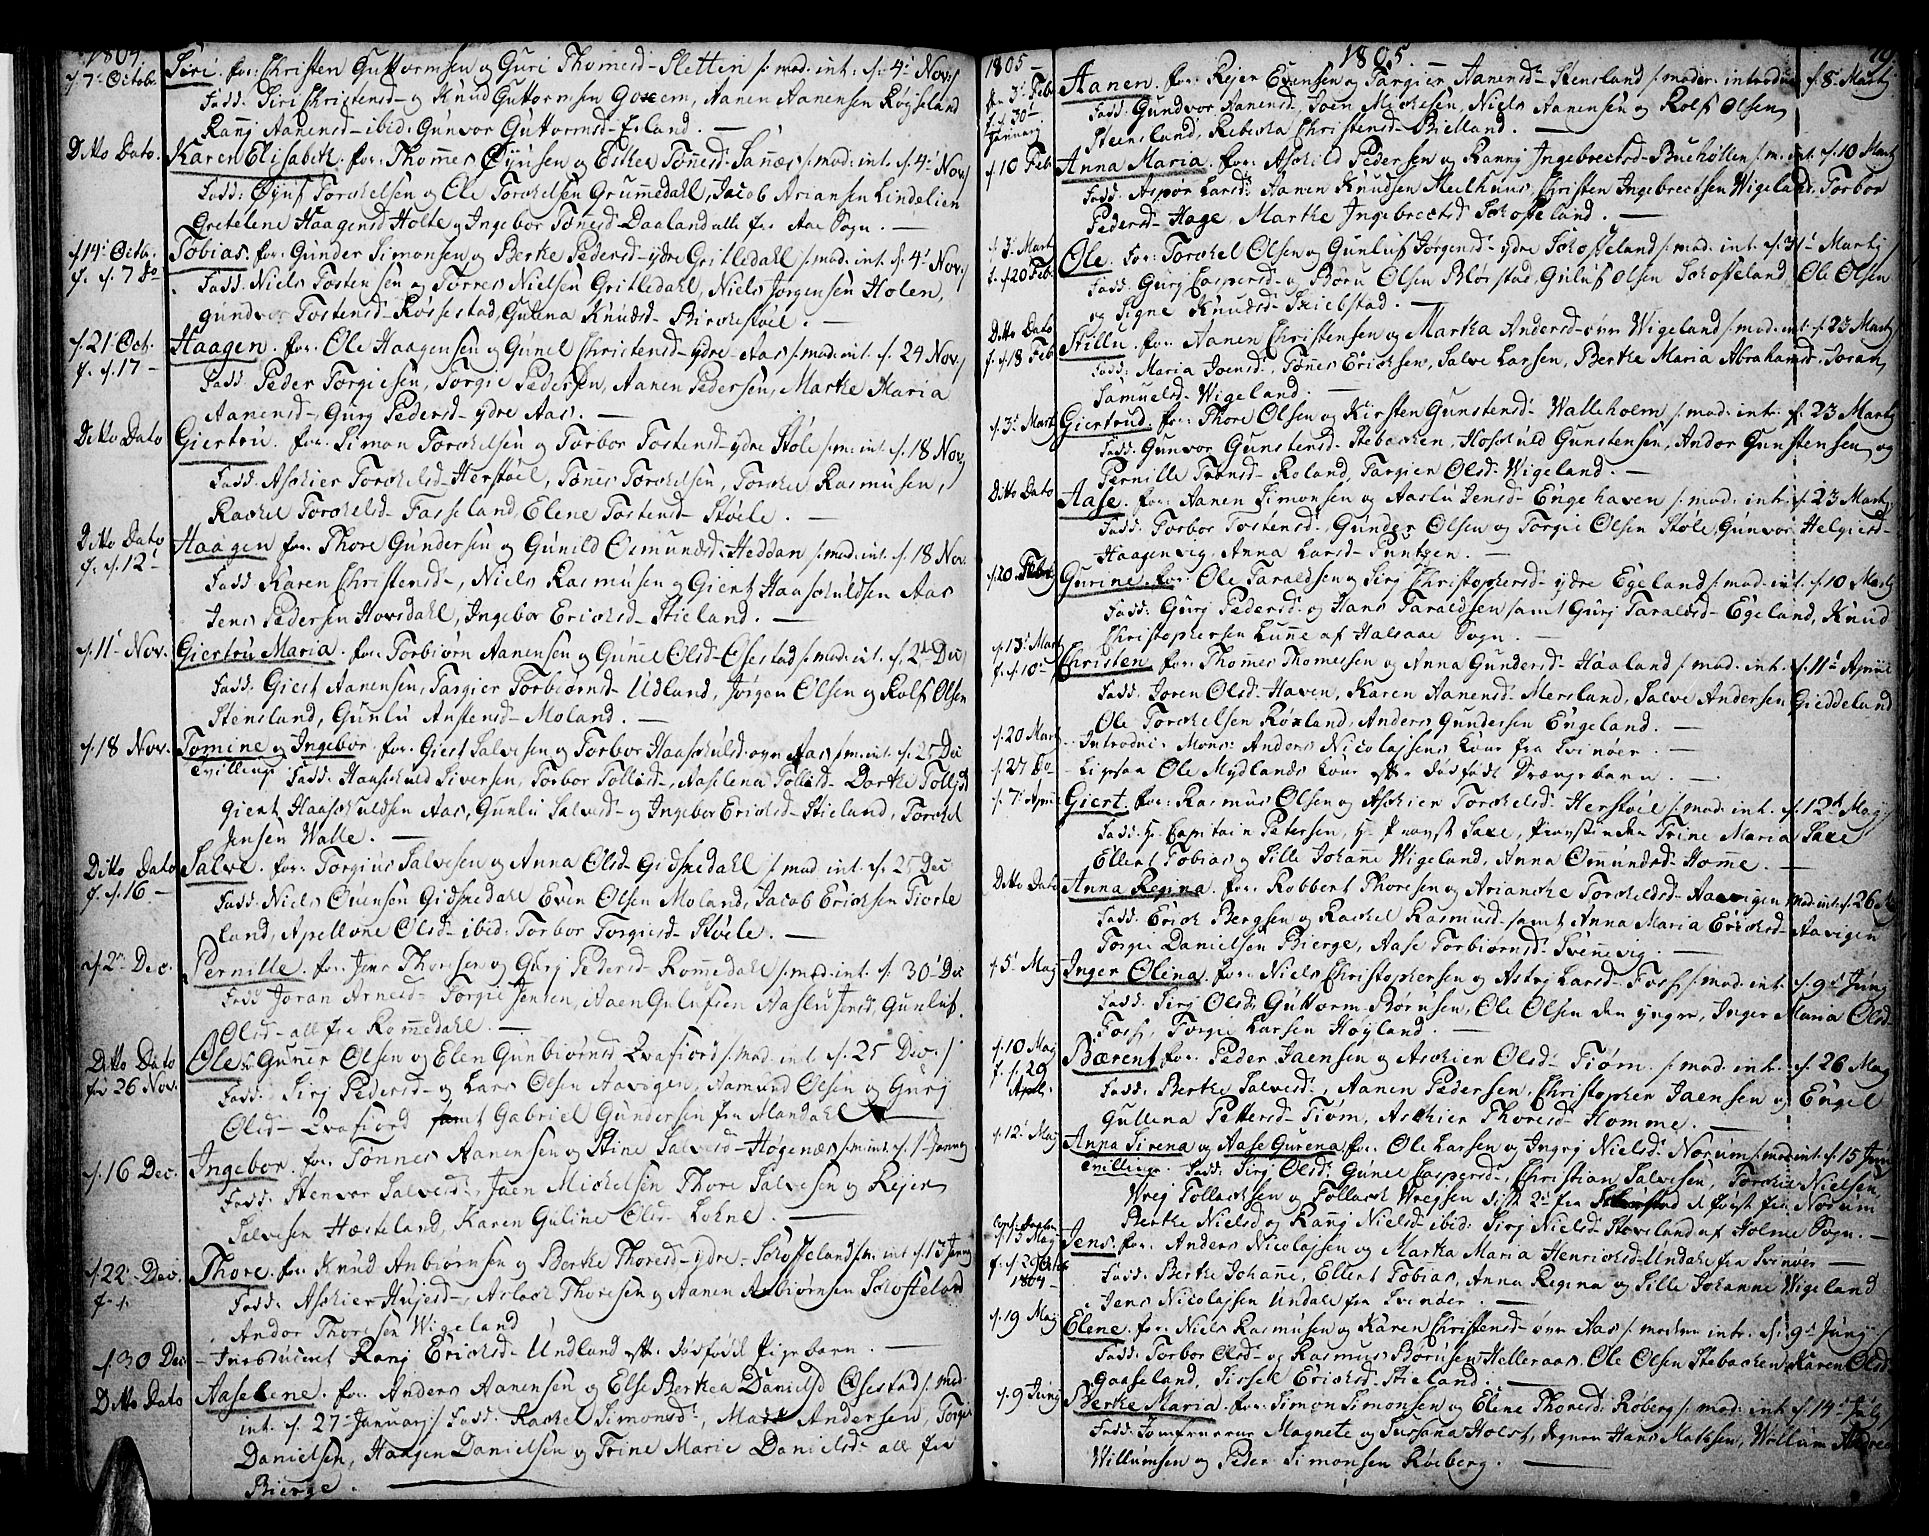 1804
d. 7' Octobr. Siri. for: Christen Guttormsen og Guri Thomesd. Sletten /: mod: int. d. 4' Nov:/
Fadd: Siri Christensd. og Knud Guttormsen Goxem, Aanen Aanensen Røyseland
Rannj Aanensd. ibid: Gunvor Guttormsd.
Ditto Dato. Karen Elisabeth. for: Thommes Øynsen og Esther Tønnesd. Sannæs /: mod: int. d. 4' Nov:/
Fadd: Øynf Torchelsen og Ole Torchelsen Grummedahl, Jacob Ariansen Lindelien
Gretelene Haagensd. Holte og Ingebor Tønnesd. Daaland alle fra Aae Sogn.
d. 14' Octbr. Tobias. for: Gunder Simonsen og Berthe Pedersd. ydre Gritledahl /: mod: int. d. 4' Nov:/
f. d. 7 Do Fadd: Niels Tostensen og Torres Nielsen Gritledahl, Niels Jørgensen Holen,
Gundvor Tostensd. Røssestad, Gurina Knudsd. Birchestøel.
d. 21' Oct. Haagen. for: Ole Haagensen og Gunel Christensd. ydre Aas /: mod: int. d. 24 Nov:/
f. d. 17 Fadd: Peder Torgiesen, Torgie Pedersen, Aanen Pedersen, Marthe Maria
Aanensd. Gurj Pedersd. ydre Aas.
Ditto Dato Giertru. for: Simon Torchelsen og Torbor Tostensd. ydre Støle /: m: int. d. 18 Nov:/
Fadd: Aschier Torchelsd. Herstøel, Tønnes Torchelsen, Torchel Rasmusen,
Rachel Torchelsd. Fasseland, Elene Tostensd. Støele.
Ditto Dato Haagen for: Thore Gundersen og Gunild Osmundsd. Heddan /: mod: int. d. 18 Nov.
f. d. 12' Fadd: Karen Christensd., Niels Rasmusen og Giert Haaschuldsen Aas
Jens Pedersen Hovsdahl, Ingebor Erichsd. Stieland.
d. 11' Nov. Giertru Maria. for: Torbiørn Aanensen og Gunnel Olsd. Ofestad /: mod: int. d. 2' Dec:/
Fadd: Giert Aanensen, Targier Torbiørnsd. Udland, Jørgen Olsen og Rolf Olsen
Stensland, Gunlu Anstensd. Moland.
d. 18 Nov. Tomine og Ingebor. for: Giert Salvesen og Torbor Haaschulsd. øvre Aas /: m: int. d. 25 Dec
Tvillinge Fadd: Haaschuld Siversen, Torbor Tollisd. Aaslena Tollisd. Dorthe Tollisd.
Giert Haaschuldsen Aas, Gunlu Salvesd. og Ingebor Erichsd. Stieland, Torchel
Jensen Walle.
Ditto Dato Salve. for: Torgius Salvesen og Anna Olsd. Gidsmedahl /: mod: int. d. 25 Dec
f. d. 16. Fadd: Niels Ovensen Gidsmedahl Even Olsen Moland, Jacob Erichsen Fiorte
land, Apellone Olsd. ibid: Torbor Torgiesd. Støele.
d. 2' Dec. Pernille. for: Jens Thoresen og Gurj Pedersd. Rommedahl /: mod: int. d. 30' Dec
Fadd: Joran Arnesd. Torgie Jensen, Aaen Gulufsen Aaslu Jensd. Gunluf.
Olsd. all fra Rommedahl.
Ditto Dato Ole. Guner Olsen og Elen Gunbiørnsd. Qvafiord /: mod: int d. 25 Dec:/
fd 26 Nov. Fadd: Sirj Pedersd. og Lars Olsen Aavigen, Aamund Olsen og Gurj
Olsd. Qvafiord samt Gabriel Gundersen fra Mandahl
d. 16 Dec. Ingebor. for: Tønnes Aanensen og Stine Salvesd. Høgenæs /: m: int. d. 1' Janny
Fadd: Stenvor Salvesd. Jaen Michelsen Thore Salvesen og Rejer
Salvesen Hæsteland, Karen Guline Olsd. Lohne.
d. 22' Dec. Thore. for: Knud Anbiørnsen og Berthe Thoresd. ydre Schofteland /: m: int d. 13' Janny
f. d. Fadd: Aschier Aujersd. Aslach Thoresen og Aanen Anbiørnsen Schofteland
Andor Thoresen Wigeland
d. 30 Dec. Introduceret Ranj Erichsd. Undland eft. dødfødt Pigebarn.
Ditto Dato Aaselene. for: Anders Aanensen og Else Berthea Danielsd. Ofestad /: mod:
int. d. 27' Januarj:/ Fadd: Rachel Simonsd., Mads Andersen, Torgie
Danielsen, Haagen Danielsen og Trine Marie Danielsd. all fra
Bierge.
1805
1805.
79.
fra 3' Feb. Aanen. for: Rejer Evensen og Targier Aanensd. Stensland /: moder: introdu: d. 8' Martj
f. d. 30' Januarj Fadd: Gundvor Aanensd. Joen Michelsen, Niels Aanensen og Rolf Olsen
Steinsland, Rebecka Christensd. Bielland.
d. 10 Feb Anna Maria. for: Aschild Pedersen og Rannj Ingebrectsd. Buehølten /: m: int. d. 10 Martj
Fadd: Aspor Larsd. Aanen Knudsen Meelhuus, Christen Ingebrectsen Wigeland, Torbor
Pedersd. Hage, Marthe Ingebrectsd. Schofteland.
d. 3' Martj Ole. for: Torchel Olsen og Gunluf Jørgensd. ydre Schofteland /: mod: int. d. 31' Martj
f. d. 20 Feb. Fadd: Gurj Caspersd. og Børu Olsen Blørstad, Guluf Olsen Schofteland, Ole Olsen
og Signe Knudsd. Skielstad.
Ditto Dato Stillu. for: Aanen Christensen og Martha Andersd. øvre Wigeland /: mod: int. d. 23 Martj
f. d. 18 Feb Fadd: Maria Joensd. Tønnes Erichsen, Salve Larsen, Berthe Maria Abrahamsd. Joran
Samuelsd. Wigeland.
d. 3' Martj Giertrud. for: Thore Olsen og Kirsten Gunstensd. Walleholm /: mod: intr: d. 23 Martj
Fadd: Gunvor Gunstensd. Stebachen, Hoschuld Gunstensen, Andor Gunstensen og
Pernille Tronsd. Roland, Targier Olsd. Wigeland.
Ditto Dato Aase. for: Aanen Simonsen og Aaslu Jensd. Engehaven /: mod: int: d. 23 Martj
Fadd: Torbor Tostensd. Gunder Olsen og Torgie Olsen Støle, Gunvor Helgiesd.
Haagenvig, Anna Larsd. Puntzen.
d. 20 Febr. Gurine. for: Ole Taraldsen og Sirj Christophersd. ydre Egeland /: mod: int. d. 10 Martj
Fadd: Gurj Pedersd. og Hans Taraldsen samt Gurj Taraldsd. Egeland, Knud
Christophersen Lunne af Halsaae Sogn.
d. 13' Martj Christen. for: Thommes Thomessen og Anna Gundersd. Haaland /: mod: int. d. 11' Apriil
f. d. 10 Fadd: Joren Olsd. Haven, Karen Aanensd. Mersland, Salve Andersen Gieddeland
Ole Torchelsen Røxland, Anders Gundersen Engeland.
d. 20 Martj - Introdu: Mons: Anders Nicolajsens Kone fra Svinøer.
d. 27 Do - Ligesaa Ole Mydlands Kone eft. dødfødt Drengebarn.
d. 7' April Giert. for: Rasmus Olsen og Aschier Torchelsd. Herstøel /: mod: int. d. 12' Maj
Fadd: Hr. Capitain Petersen, Hr. Provst Saxe, Provstinden Trine Maria Saxe
Ellert Tobias og Sille Johanne Wigeland, Anna Ommundsd. Homme.
Ditto Dato Anna Regina. for: Robbert Thoresen og Ariancke Torchelsd. Aavigen mod: int. d. 26
Fadd: Erich Bergsen og Rachel Rasmusd. samt Anna Maria Erichsd. Aavigen
Torgie Danielsen Bierge, Aase Torbiørnsd. Svennevig
d. 5' Maj Inger Olena. for: Niels Christophersen og Astrj Larsd. Foss /: mod: int. d. 9' Junj
Fadd: Sirj Olsd. Guttorm Børusen, Ole Olsen den yngre, Inger Maria Olsd.
Foss, Torgie Larsen Høyland.
d. 10 Maj Bærent. for: Peder Jaensen og Aschien Olsd. Tiøm. /: mod: int. d. 26 Maj
f. d. 29 April. Fadd: Berthe Salvesd., Aanen Pedersen, Christopher Jaensen og Engel
Gullena Pettersd. Tiøm, Aschier Thoresd. Homme.
d. 12' Maj Anna Sirena og Aase Gurena. for: Ole Larsen og Ingrj Nielsd. Norum /: mod: int. d. 15 Junj
Tvillinge. Fadd: Sirj Olsd. Gunel Caspersd., Christian Salvesen, Torchel Nielsen
Wrej Tollachsen og Tollach Wrejsen sidst 2' fra de først fra Norum
Berthe Nielsd. og Ranj Nielsd. ibid: Sirj Nielsd. Stoveland af Holme Sogn.
d. 15 Maj Jens. for: Anders Nicolajsen og Martha Maria Henrichsd. Undahl fra Svinøer
f. d. 29 1804 Fadd: Berthe Johanne, Ellert Tobias, Anna Regina og Sille Johanne Wigeland
Jens Nicolajsen Undahl fra Svinøer.
d. 19 Maj Elene. for: Niels Rasmusen og Karen Christensd. øvre Aas /: moder intr. d. 9' Junj
Fadd: Torbor Olsd. og Rasmus Børusen Helleraas, Ole Olsen Stebachen, Karen Olsd.
Gaaseland, Sissel Erichsd. Stieland.
d. 9' Junj Berthe Maria. for: Simon Simonsen og Elene Thoresd. Røberg /: mod: int d. 14' Julj
Fadd: Jomfruerne Magnete og Susana Holst, Degnen Hans Mathsen, Willum Andrea
Willumsen og Peder Simonsen Røeberg.